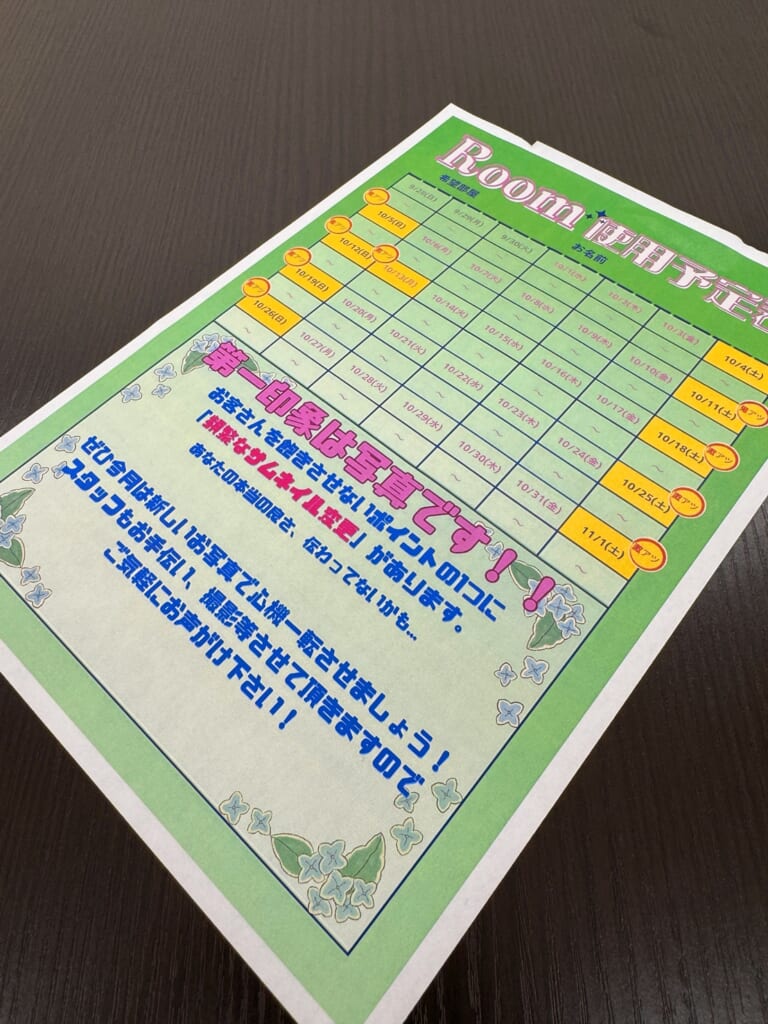 Room 使用予定
希望部屋 お名前
9/28(日) 9/29(月) 9/30(火) 10/1(水) 10/2(木) 10/3(金) 10/4(土)
～ ～ ～ ～ ～ ～ ～
激アツ 10/5(日) 10/6(月) 10/7(火) 10/8(水) 10/9(木) 10/10(金) 10/11(土) 激アツ
～ ～ ～ ～ ～ ～ ～
激アツ 10/12(日) 激アツ 10/13(月) 10/14(火) 10/15(水) 10/16(木) 10/17(金) 10/18(土) 激アツ
～ ～ ～ ～ ～ ～ ～
激アツ 10/19(日) 10/20(月) 10/21(火) 10/22(水) 10/23(木) 10/24(金) 10/25(土) 激アツ
～ ～ ～ ～ ～ ～ ～
激アツ 10/26(日) 10/27(月) 10/28(火) 10/29(水) 10/30(木) 10/31(金) 11/1(土) 激アツ
～ ～ ～ ～ ～ ～ ～
第一印象は写真です！！
お客さんを飽きさせないポイントの1つに
「頻繁なサムネイル変更」があります。
あなたの本当の良さ、伝わってないかも…
ぜひ今月は新しいお写真で心機一転させましょう！
スタッフもお手伝い、撮影等させて頂きますので
ご気軽にお声がけ下さい！